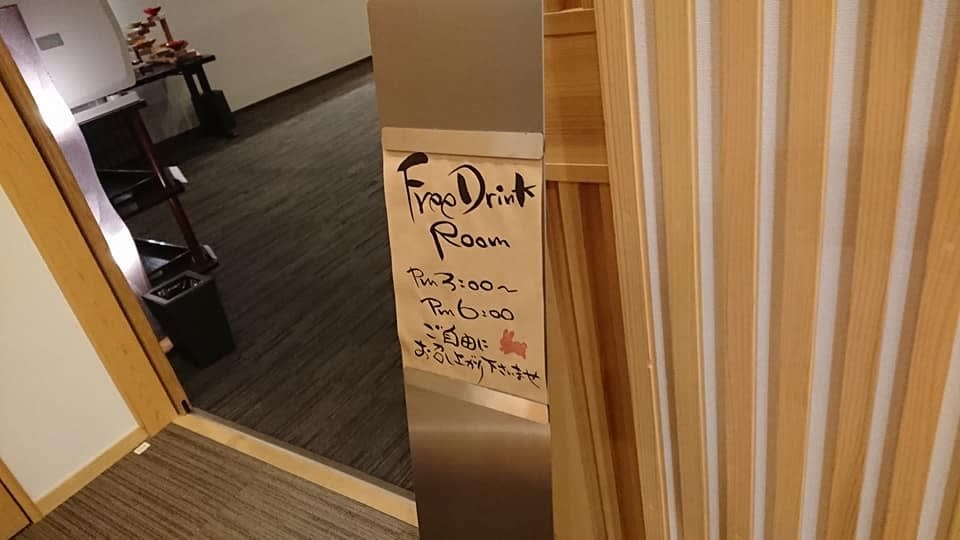 Free Drink
Room
Pm 3:00~
Pm 6:00
ご自由に
お召し上がり下さいませ